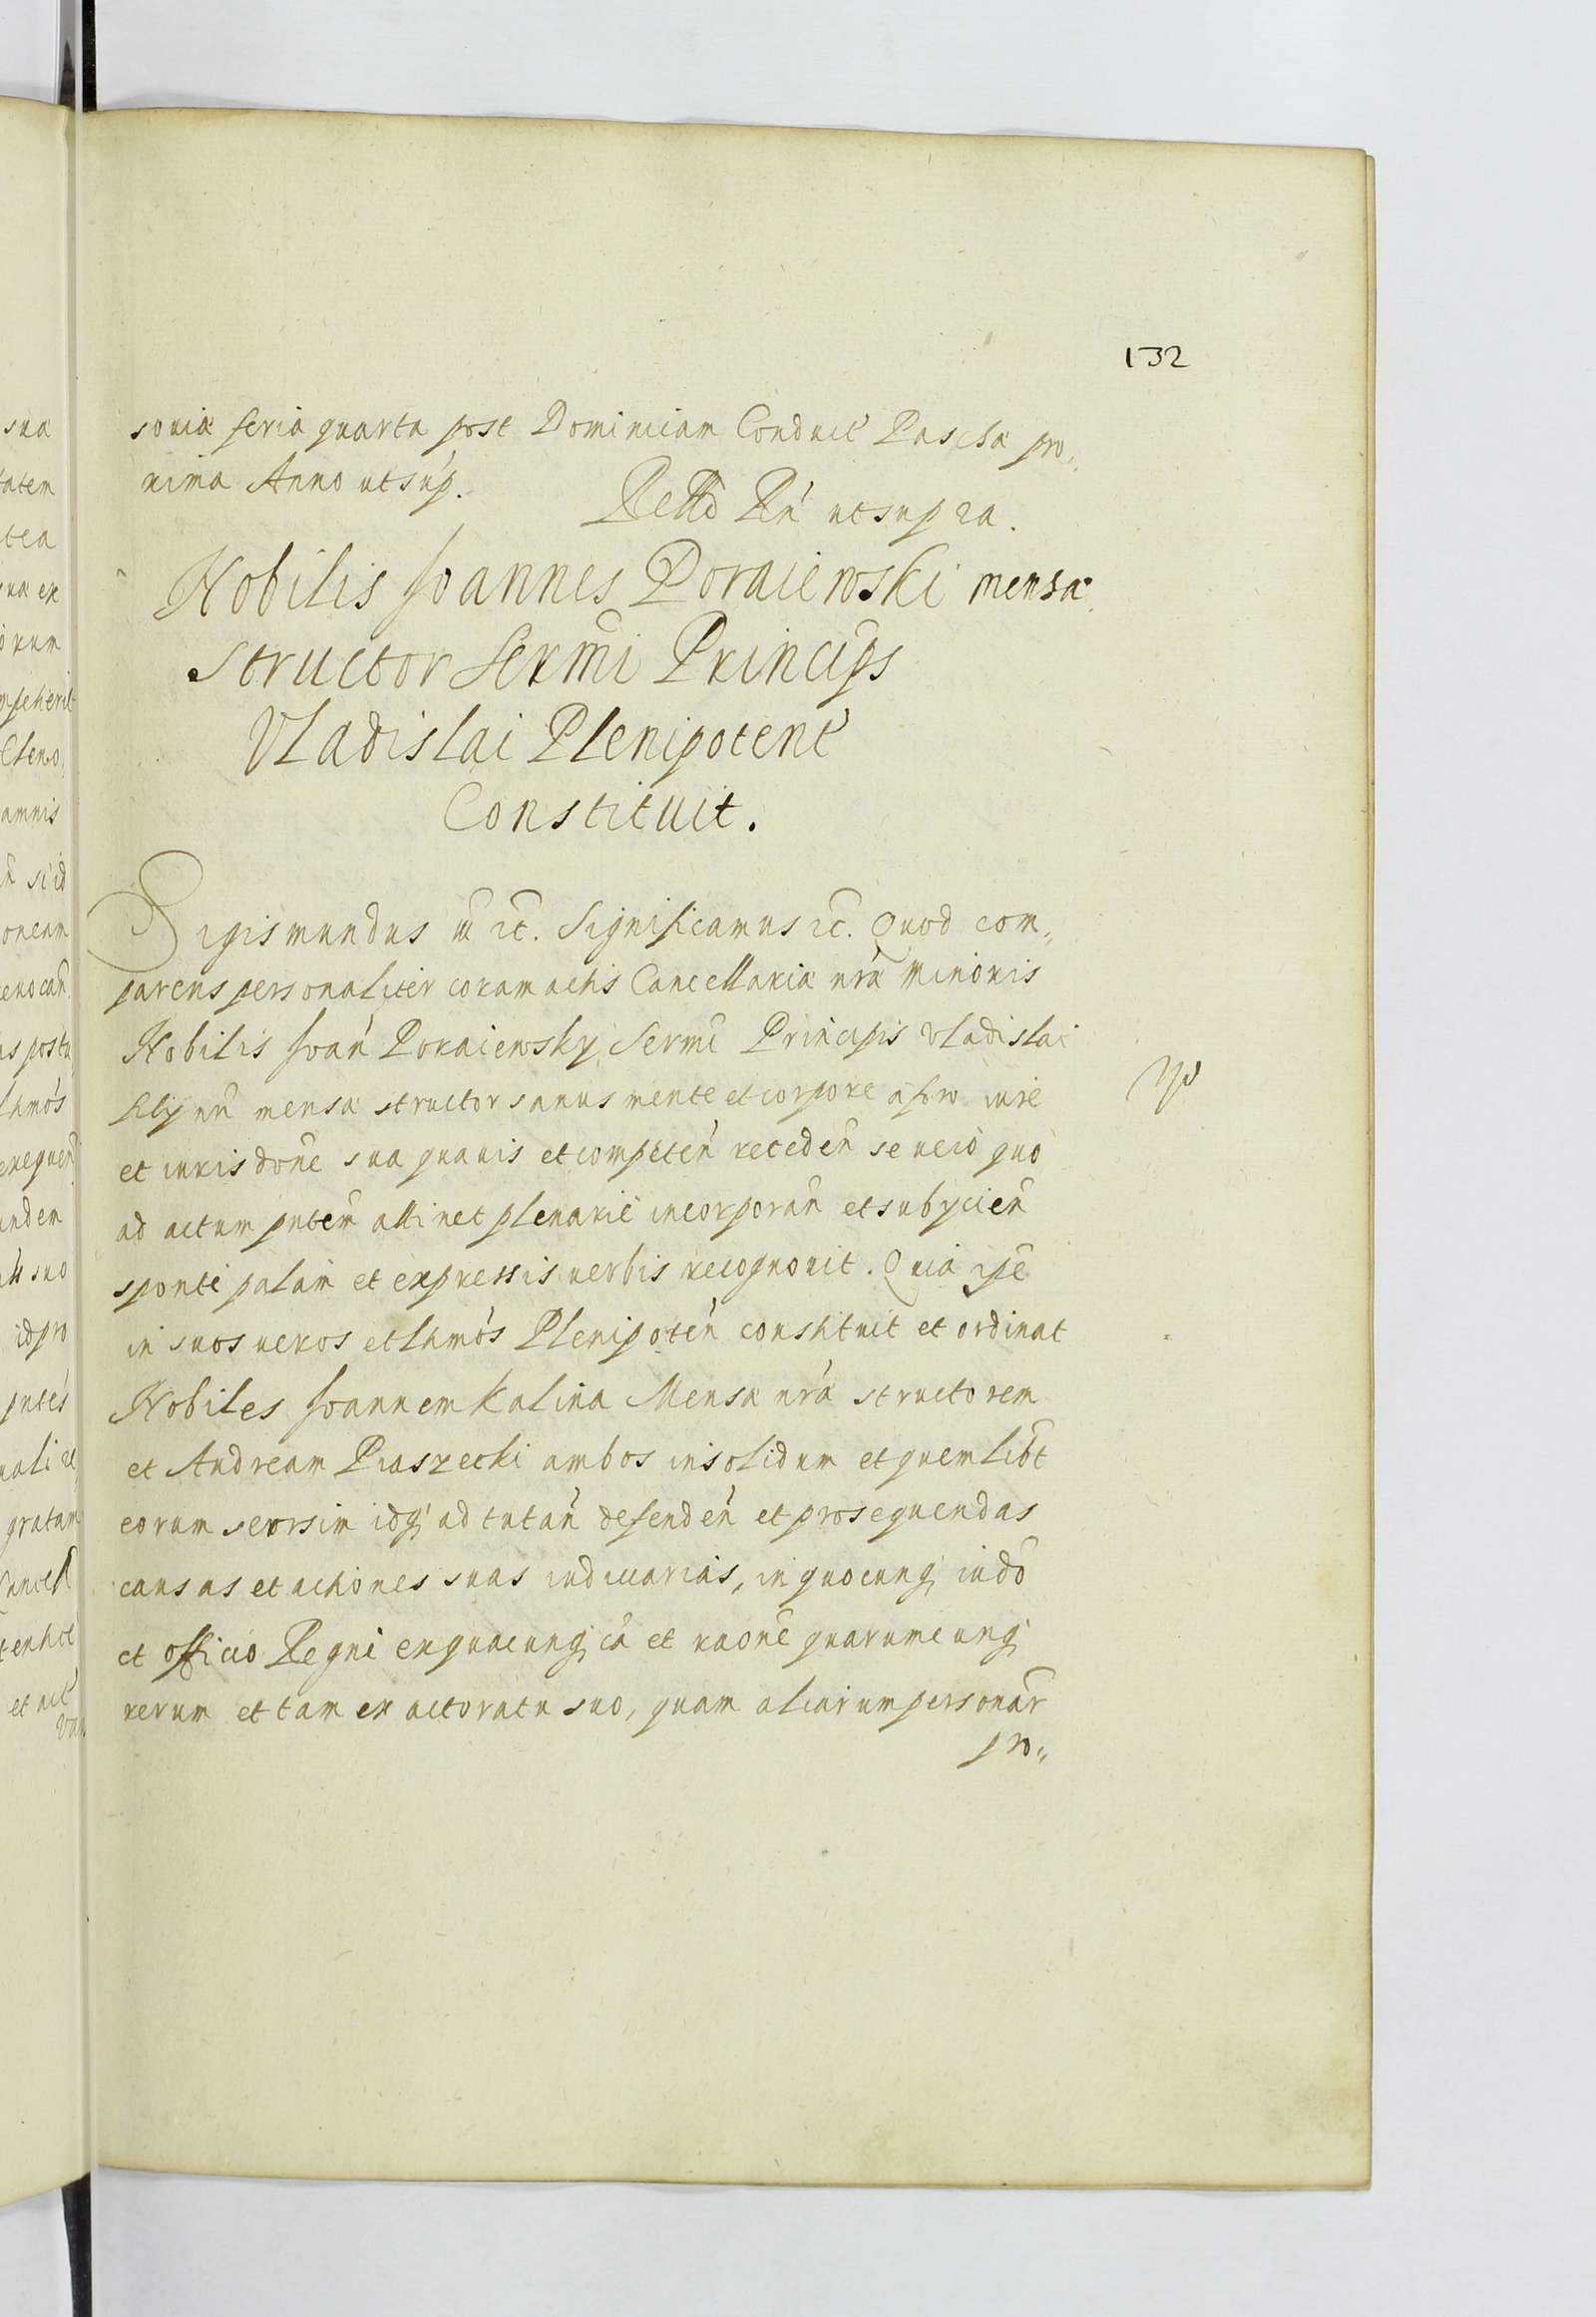 132
soviæ feria quarta post Dominicam Conduct Paschæ pro„
xima Anno ut sup.
Rello Rñ ut supra.
Nobilis Joannes Poraiewski mensæ
structor Sermi Princips
Vladislai Plenipotent
Constituit.
Sigismundus III etc. Significamus etc. Quod com„
parens personaliter coram actis Cancellariæ nræ Minoris
Nobilis Joan Poraiewsky Sermi Principis Vladislai
filij nri mensæ structor sanus mente et corpore a foro iure
et iurisdone sua quavis et competen receden se vero quo
ad actum pntem attinet plenarie incorporan et subycien
sponte palam et expressis verbis recognovit. Quia ipse
in suos veros et lhmos Plenipoten constituit et ordinat
Nobiles Joannem Kalina Mensæ nræ structorem
et Andream Piaszecki ambos insolidum et quemlibt
eorum seorsim idq; ad tutan defenden et prosequendas
causas et actiones suas iudiciarias, in quocunq; iudo
et officio Regni ex quacunq; ca et raone quarumcunq;
rerum et tam ex actoratu suo, quam aliarum personar
pro„